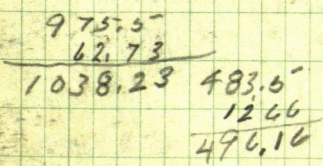 975.5
62.73
1038.23
483.5
12.66
496.16